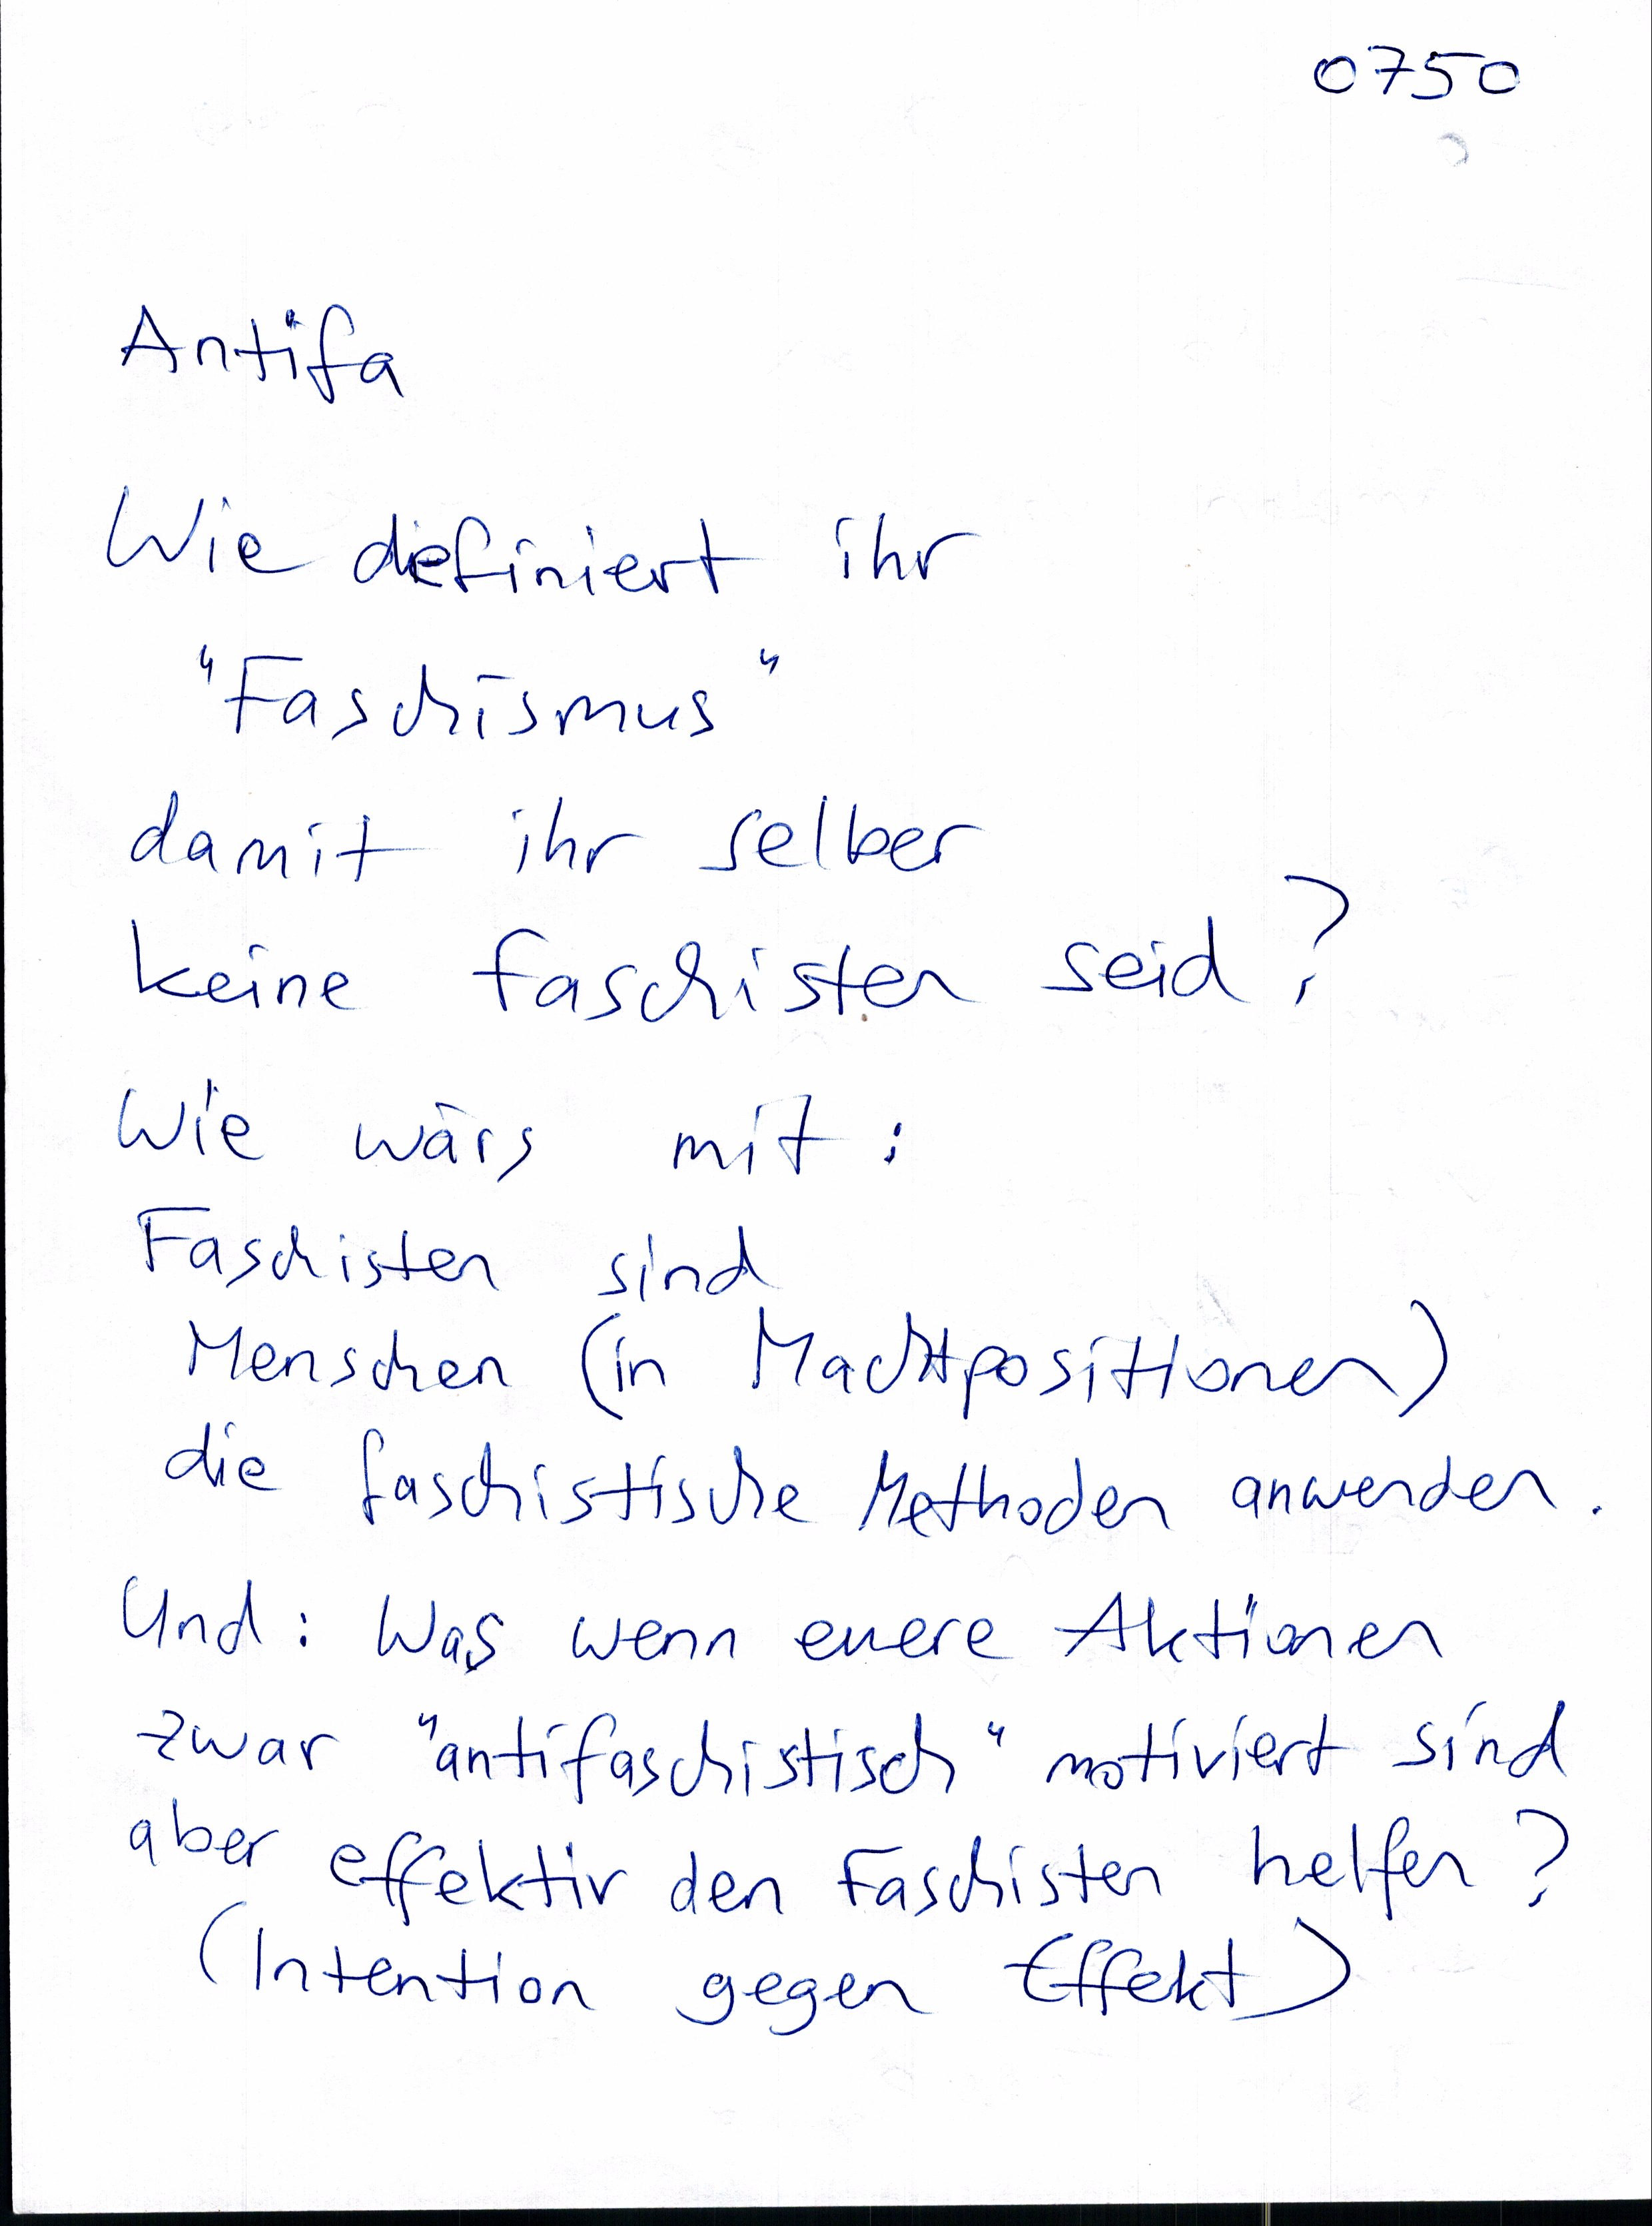 0750
Antifa
Wie definiert ihr
"Faschismus"
damit ihr selber
keine faschisten seid?
Wie wärs mit:
Faschisten sind
Menschen (in Machtpositionen)
die faschistische Methoden anwenden.
Und: Was wenn euere Aktionen
zwar "antifaschistisch" motiviert sind
aber effektiv den Faschisten helfen?
(Intention gegen Effekt)